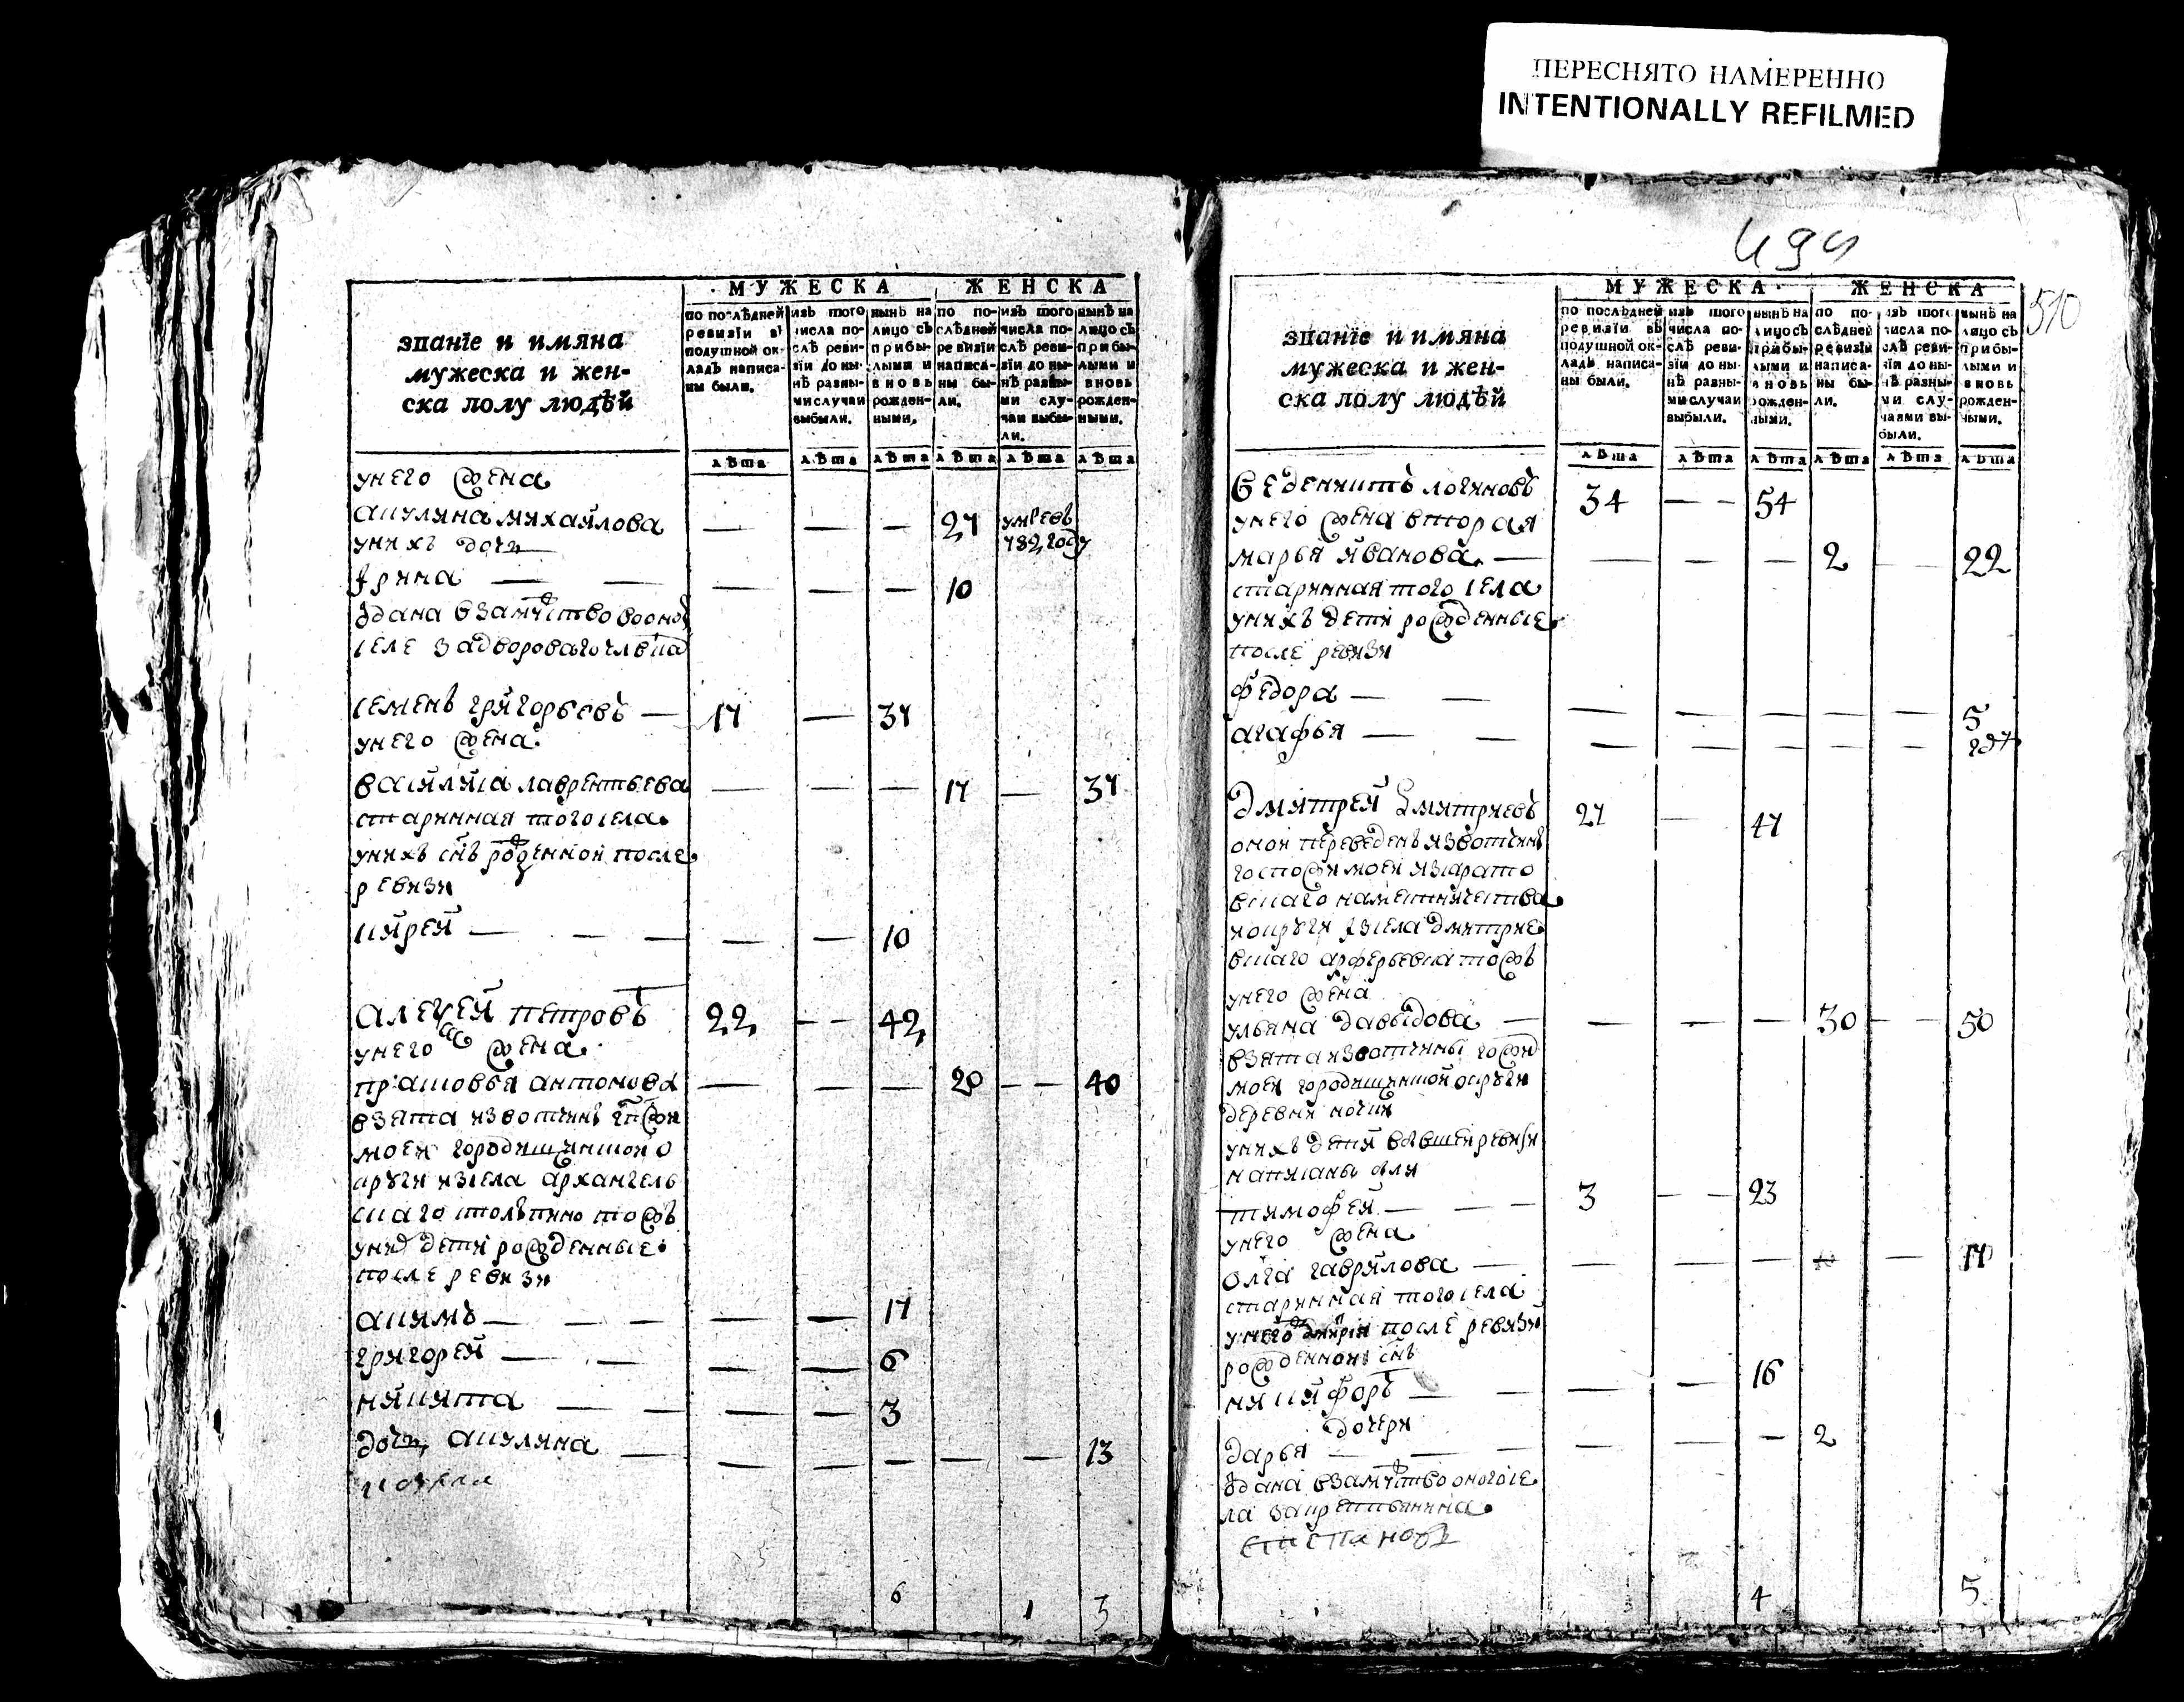 ПЕРЕСНЯТО НАМЕРЕННО
INTENTIONALLY REFILMED
званïе и имяна мужеска и жен- ска полу людѣй
МУЖЕСКА
ЖЕНСКА
по послѣдней ревизïи въ подушной ок- ладъ написа- ны были.
изъ того числа по- слѣ реви- зïи до ны- нѣ разны- ми случаи выбыли.
нынѣ на лицо съ прибы- лыми и вновь рожден- ными.
по по- слѣдней ревизïи написа- ны бы- ли.
изъ того числа по- слѣ реви- зïи до ны- нѣ разны- ми слу- чаи выбы- ли.
нынѣ на лицо съ прибы- лыми и вновь рожден- ными.
лѣта лѣта лѣта лѣта лѣта лѣта
унего жена
акулина михайлова — — — 27 умре въ 782 году
унихъ дочь
Iрина — — — — — 10
селе
семенъ григорьевъ — 17 — 37
унего жена
василиса лаврентьева — — — 17 — 37
старинная того села
унихъ снъ рожденной после
ревизи
кирей — — — — — 10
алексей петровъ 22 — — 42
унего жена
прасковья антонова — — — 20 — — 40
взята извотчинъ
моей городищенской о
круги изсела архангель
скаго столыпино тожъ
унихъ дети рожденные
после ревизи
акимъ — — — — — 17
григорей — — — — — 6
никита — — — — 3
дочь акулина — — — — — — 13
6 1 3
494
510
званïе и имяна мужеска и жен- ска полу людѣй
МУЖЕСКА
ЖЕНСКА
по послѣдней ревизïи въ подушной ок- ладъ написа- ны были.
изъ того числа по- слѣ реви- зïи до ны- нѣ разны- ми случаи выбыли.
нынѣ на лицо съ прибы- лыми и вновь рожден- ными.
по по- слѣдней ревизïи написа- ны бы- ли.
изъ того числа по- слѣ реви- зïи до ны- нѣ разны- ми слу- чаями вы- были.
нынѣ на лицо съ прибы- лыми и вновь рожден- ными.
лѣта лѣта лѣта лѣта лѣта лѣта
логиновъ 34 — — 54
унего жена вторая
марья иванова — — — — 2 — 22
старинная того села
унихъ дети рожденные
после ревизи
федора — — — — — — — 5
агафья — — — — — — —
дмитрей дмитриевъ 27 — 47
оной переведенъ извотчинъ
госпожи моей изсарато
вскаго наместничества
изсела дмитрие
вскаго тожъ
унего жена
ульяна давыдова — — — — 30 — — 50
взята извотчины
моей городищенской округи
деревни
унихъ дети ревизи
написаны были
тимофей — — — 3 — — 23
унего жена
олга гаврилова — — — — — 17
старинная того села
после ревизи
рожденной снъ
никифоръ — — — — 16
дочери
дарья — — — — — — 2
села за крестьянина
4 5